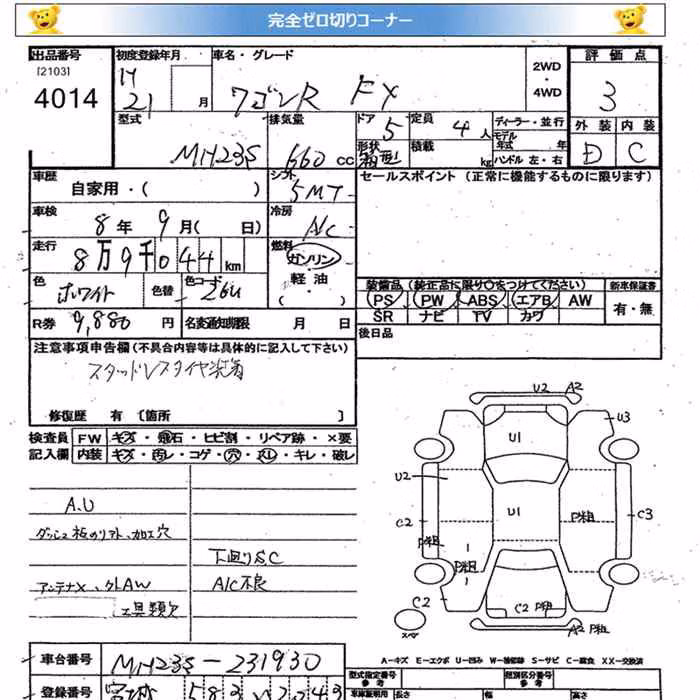 完全ゼロ切りコーナー
出品番号 初度登録年月 車名・グレード 2WD・4WD 評価点
[2103]
4014 H21 月 ワゴンR FX 3
型式 排気量 ドア 定員 ディーラー・並行 外装 内装
MH23S 660 CC 5 4人 モデル年式 年 D C
形状 積載 kg ハンドル 左・右
車歴 シフト セールスポイント (正常に機能するものに限ります)
自家用・( ) 5MT
車検 冷房
8年 9月( 日) A/C
走行 燃料
8万9千044km ガソリン・軽油・( )
色 色替 色コード 装備品 (純正品に限り○をつけてください) 新車保証書
ホワイト 26U PS PW ABS エアB AW 有・無
SR ナビ TV カワ
R券 9,880円 名変通知期限 月 日 後日品
注意事項申告欄 (不具合内容等は具体的に記入して下さい)
スタッドレスタイヤ装着
修復歴 有 〔箇所 〕
検査員 FW キズ・飛石・ヒビ割・リペア跡・×要
記入欄 内装 キズ・汚レ・コゲ・穴・スレ・キレ・破レ
A.U
加工穴
下廻りSC
アンテナX、外AW A/C不良
工具類欠
U2 A2
U1 U3
U2
C2 U1 P粗 C3
P粗
P粗
C2 C2 P粗
スペア A2 P粗
A-キズ E-エクボ U-凹み W-補修跡 S-サビ C-腐食 XX-交換済
車台番号 MH23S-231930 型式指定番号 類別区分番号
登録番号 宮城 583 参考 車庫証明用 長さ 幅 高さ